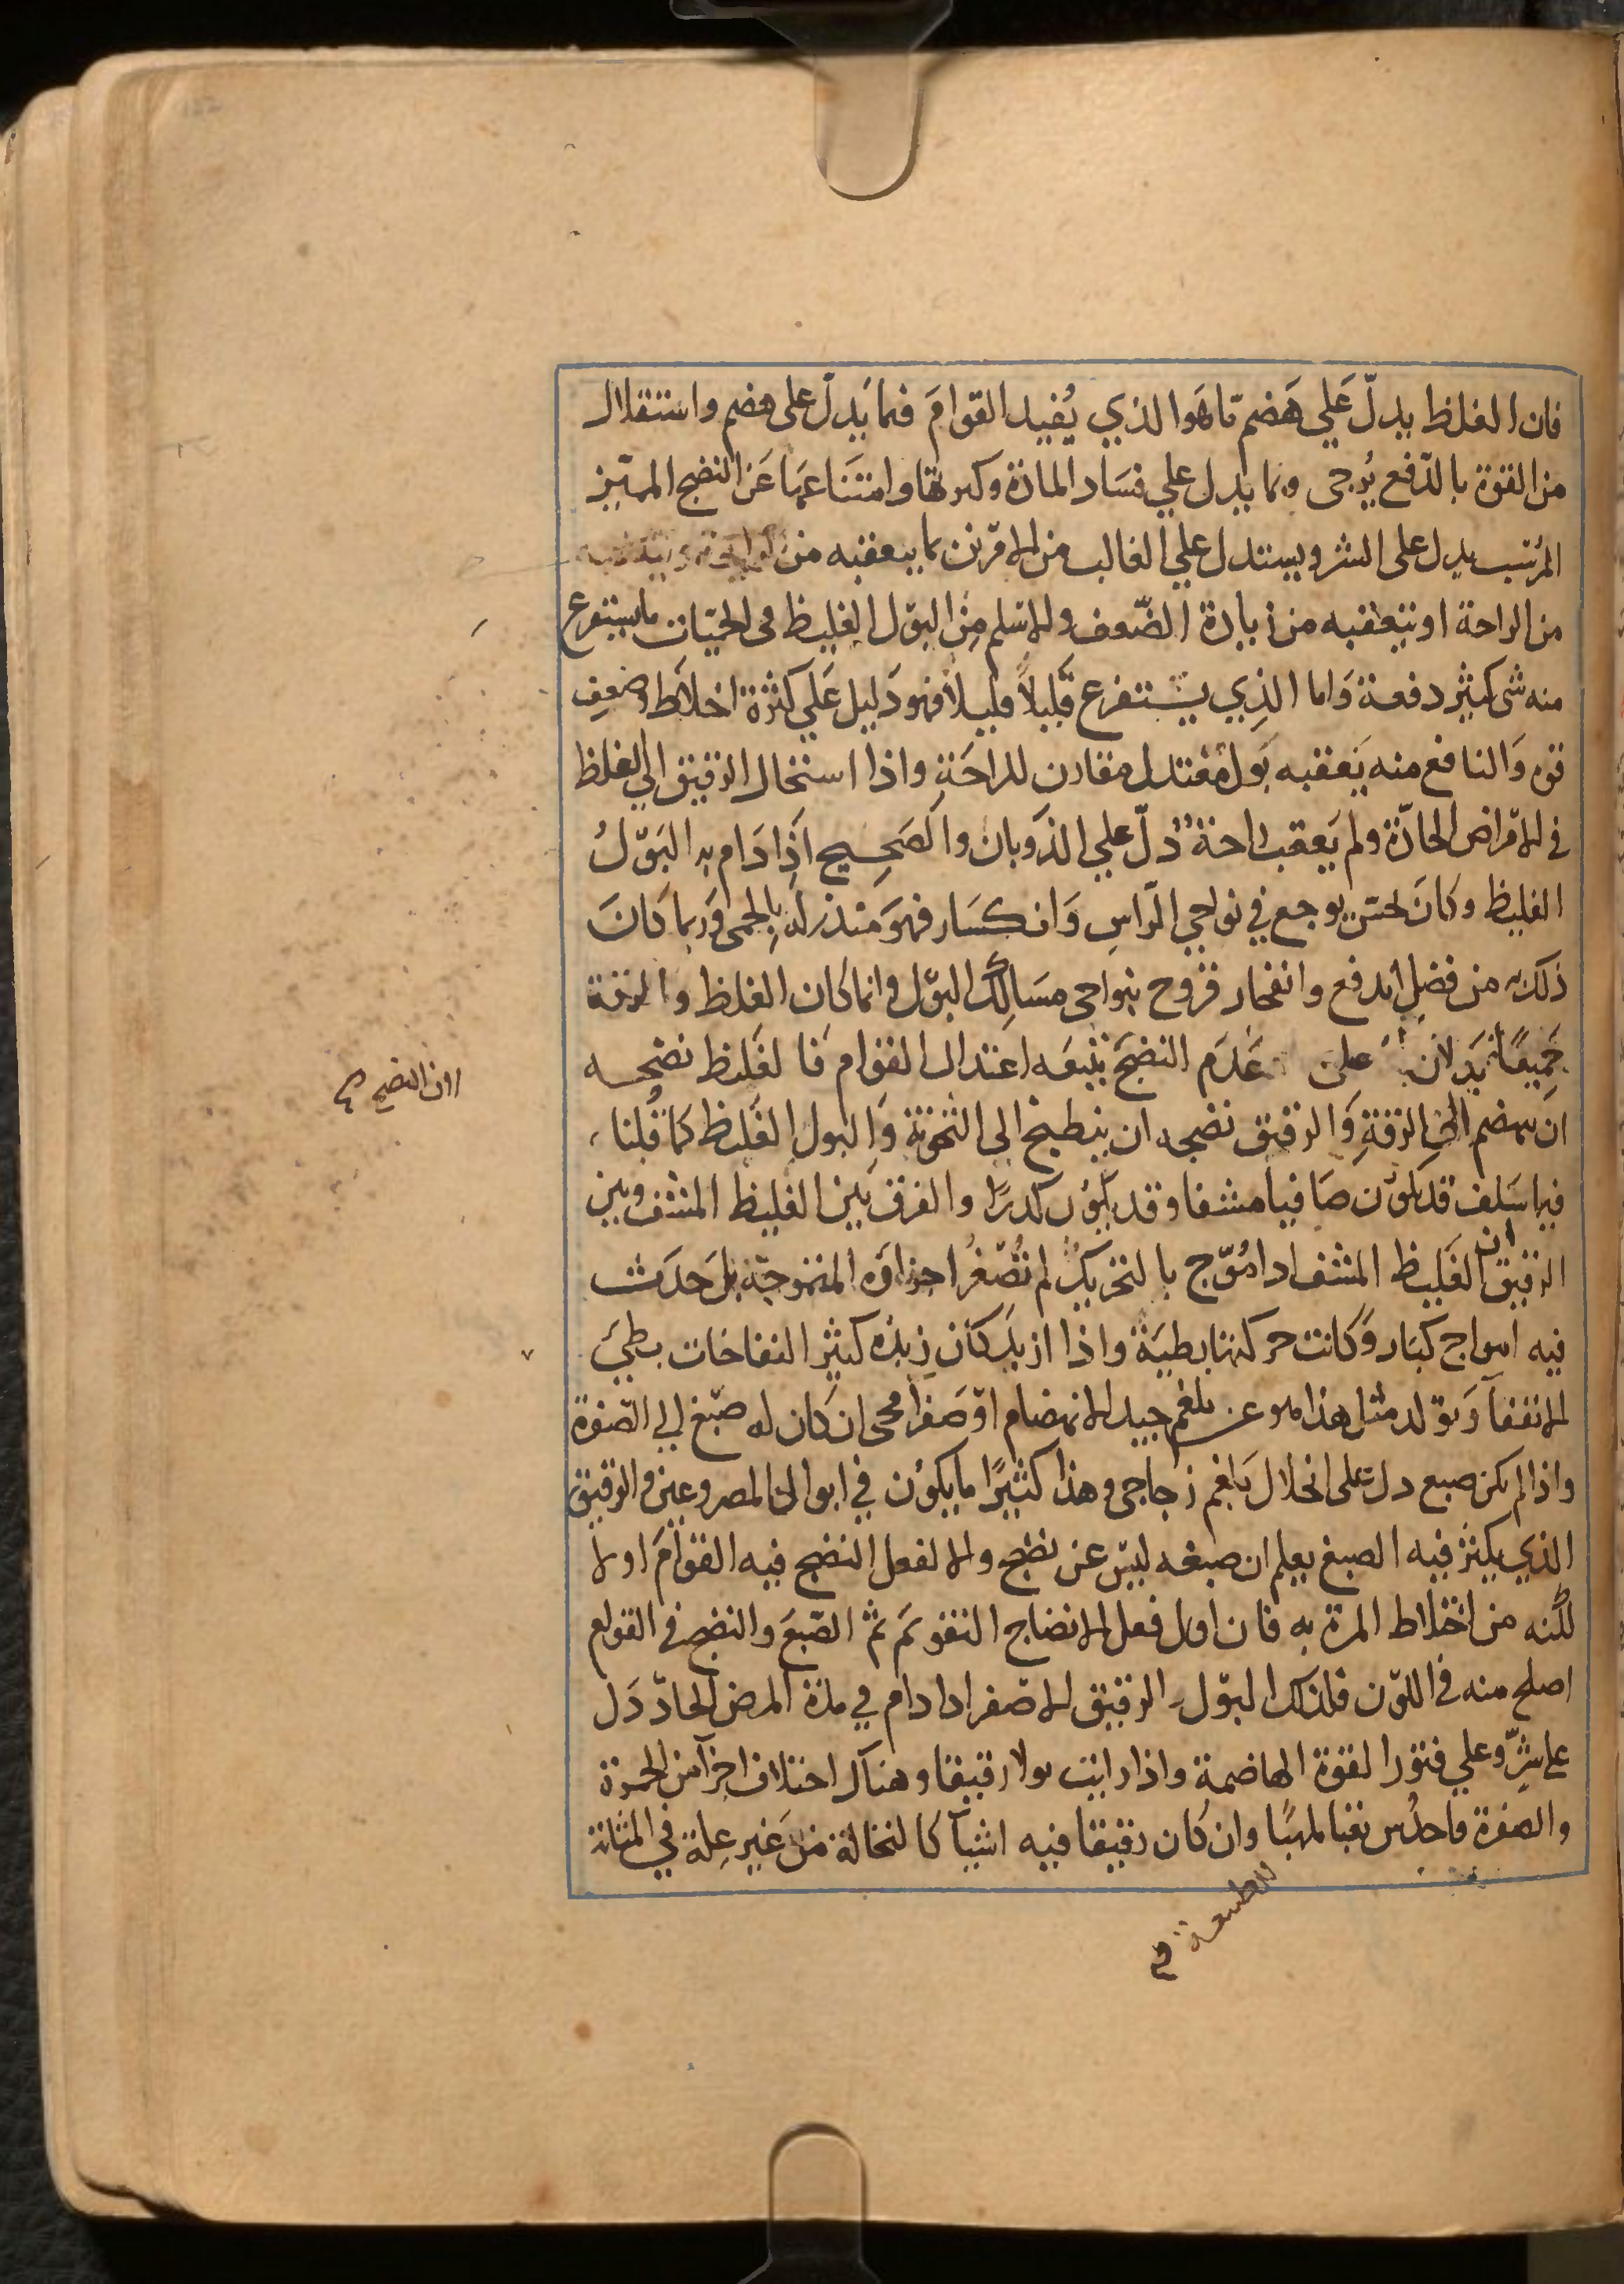 فان الغلظ يدلّ عَلي هَضم مّا هَوا لذي يُفيد القوامَ فما يَدلّ على هضم واستقلال
من القوة بالدّفع يُرجى وما يدل علي فسَاد المادة وكثرتها وامتنَاعهَا عَن النضج المميّز
المرُتب يدل على الشر ويستدل علي الغالب من الامّرين بما يتعقبه من
من الراحة او يتعقبه من زيادة الضّعف والاسَلم مِن البوّل الغليظ في الحميّات ما يستفرغ
منه شى كثير دفعة وَاما الذِي يستفرغ قَليلاً قليلاً فهو دَليل عَلي كثرة اخلاط او ضعف
قوه وَالنافع منه يَعقبه بَول مُعتدل مقارن للراحَة واذا استحال الرقيق الي الغلظ
في الامّراض الحادّة ولم يَعقب راحة دلّ علي الذوَبان والصَحِيح اَذِا دَام به البَوّلُ
الغليظ وكانَ يحس بوجع في نواحي الرّاسِ وَانكسَار فهوَ منذر له بِالحمى وَربما كانَ
ذلك به من فضلٍ اندفع وانفجار قروح بنواحي مسَالِك البوّل وانما كان الغلظ والرقة
جَميعًا يَدلان على عَدَم النضجَ يتبعَه اعتدال القوام فَا لغَليظ نضجه
انِ ينهضم الي الرقةِ وَالرقيق نضجه ان ينطبخ الى الثخونة وَالبول الغَليظ كما قُلنا
فيما سَلف قد يكوّن صَافيا مشفا وقد يكوُن كدرًا والفرق بَين الغليظ المشف وبين
الرقيق ان الغَليظ المشف اذا مُوّج بالتحريكُ لم تُصّغرُ اجزاوَه المتموجّة بل حَدَثت
فيه امواج كبَار وَكانت حركتها بطيَة واذا ازبدَ كان زبدَه كثير النفاخات بطئَ
الانفقاَ وَتوّلد مثل هذا هو عن بلغم جيد الانهضام اوّصَفرا محى ان كان له صَبغ الي الصّفرة
واذا لم يكن صبغ دل على انحلال بَلغم زجاجي وهذا كثيرًا ما يكوُن في ابوال المصروعين والرقيق
الذي يكثر فيه الصبغ يعلم ان صبغه ليسّ عن نضج والا لفعل النضج فيه القوامَ اولا
لكنه من اختلاط المرة به فان اول فعل الانضاج التقويَم ثم الصّبغَ والنضج في القوام
اصلح منه في اللوّن فلذلك البوّل الرقيق الاصّفر اذا دام في مدة المرض الحادّ دَل
علي شرّ وعلي فتوُر القوة الهاضمة واذا رايت بولا رقيقا وهناك اختلاف اجزآ من الحمرة
والصفرة فاحدُس تعبا ملهبًا وان كان رقيقا فيه اشيآ كالنخالة من غَير عِلة في المثانة